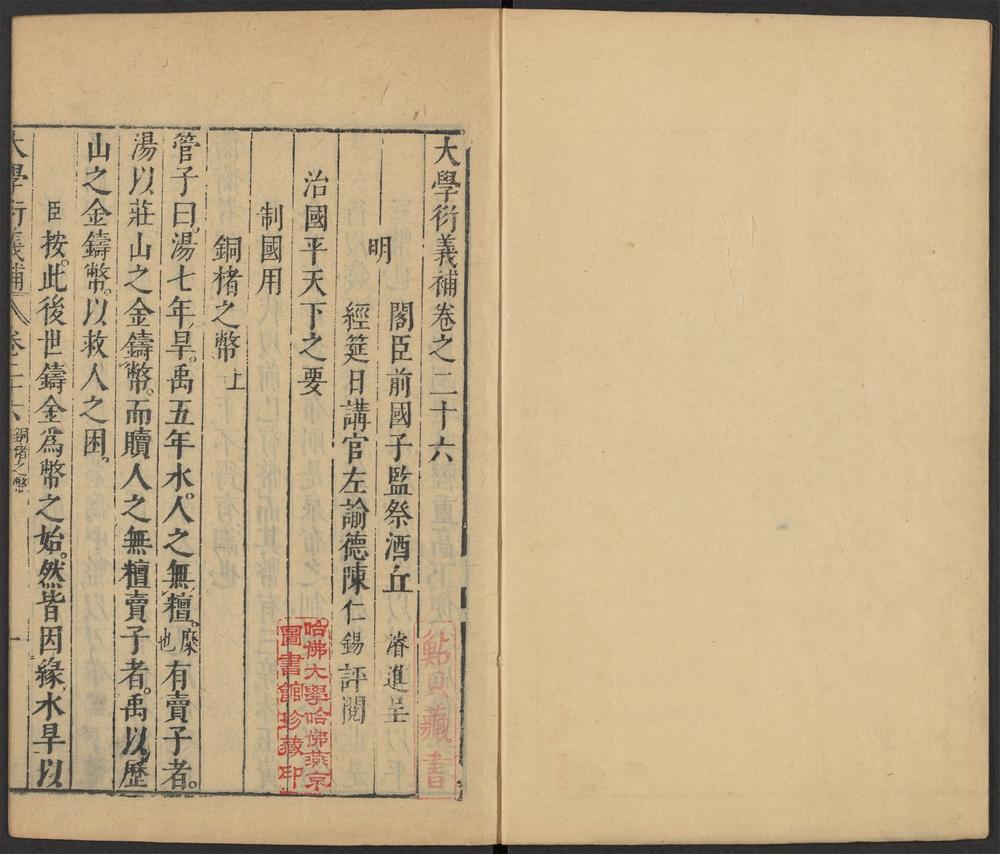 大學衍義補卷之二十六
明 閣臣前國子監祭酒丘 濬進呈
經筵日講官左諭德陳仁錫評閱
治國平天下之要
制國用
銅楮之幣上
管子曰。湯七年旱。禹五年水。人之無䊤。糜也有賣子者。
湯以莊山之金鑄幣。而贖人之無䊤賣子者。禹以歷
山之金鑄幣。以救人之困。
臣按。此後世鑄金為幣之始。然皆因緣水旱以
大學衍義補 卷二十六 銅楮之幣 一
藏書
哈佛大學哈佛燕京
圖書館珍藏印